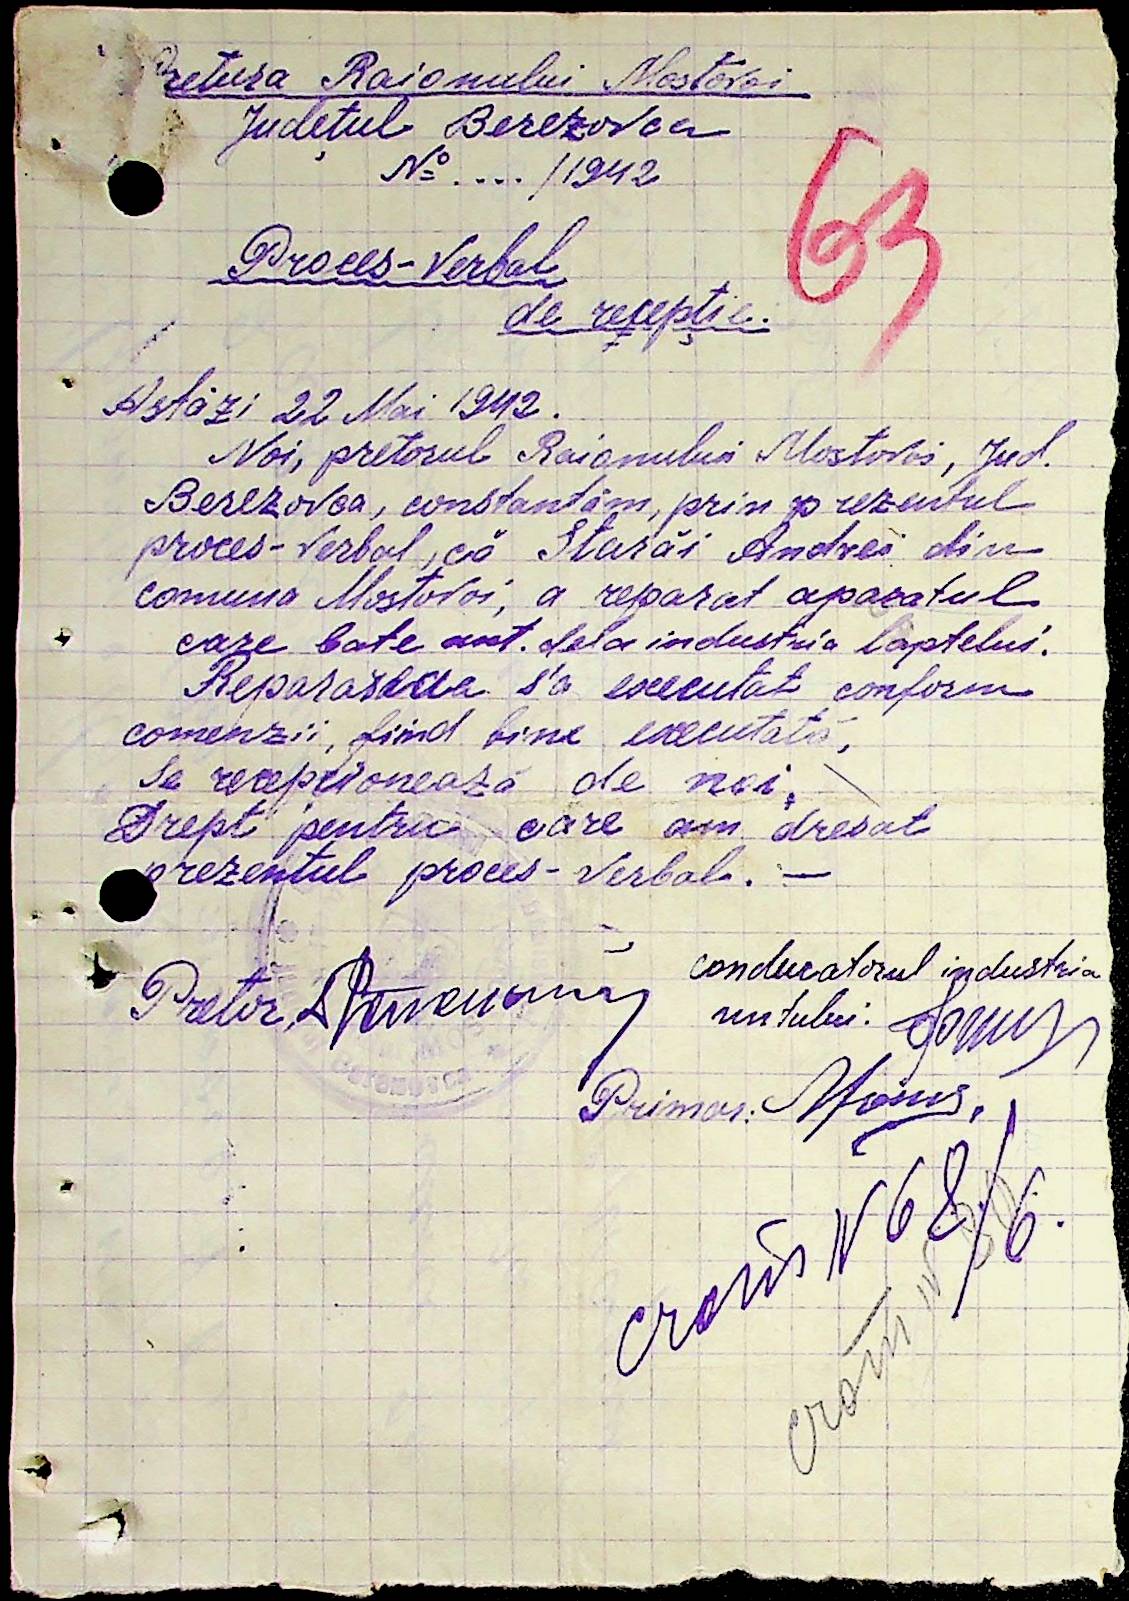 Pretura Raionului Mostovoi
Județul Berezovca
Nº .... /1942
63
Proces-Verbal
de recepție.
Astăzi 22 Mai 1942.
Noi, pretorul Raionului Mostovoi, Jud.
Berezovca, constantăm, prin prezentul
proces-verbal, că Starăi Andrei din
comuna Mostovoi, a reparat aparatul
care bate unt. dela industria laptelui.
Repararea s'a executat conform
comenzii, fiind bine executată,
se recepționează de noi.
Drept pentru care am dresat
prezentul proces-verbal. —
conducatorul industria
Pretor,
untului:
Primar:
счет N 68/6.
счет N